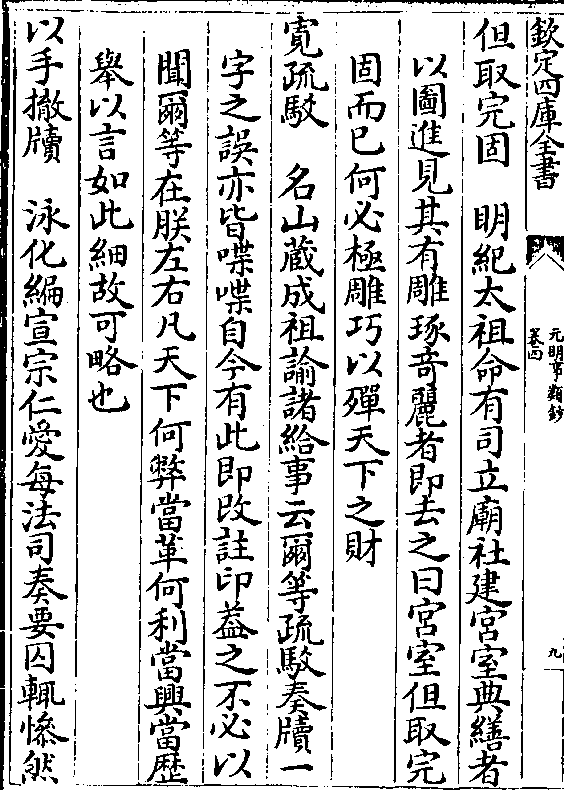 欽定四庫全書
元明事類鈔
卷四
九
但取完固　明紀太祖命有司立廟社建宮室典繕者
以圖進見其有雕琢竒麗者即去之曰宮室但取完
固而已何必極雕巧以殫天下之財
寛疏駁　名山藏成祖諭諸給事云爾等疏駁奏牘一
字之誤亦皆喋喋自今有此即改註印葢之不必以
聞爾等在朕左右凡天下何弊當革何利當興當歴
舉以言如此細故可略也
以手撤牘　泳化編宣宗仁愛每法司奏要囚輒慘然